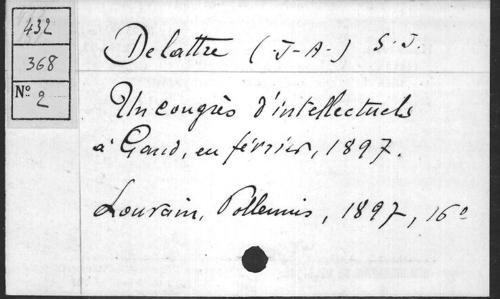 432
368
Nº 2
Delattre (J-A-) S.J.
Un congrès d'intellectuels
à Gand, en février, 1897.
Louvain, Polleunis, 1897, 16º